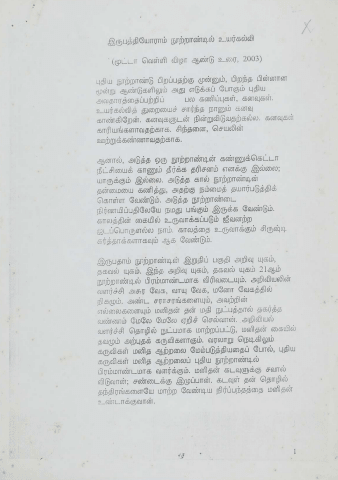 இருபத்தியோராம் நூற்றாண்டில் உயர்கல்வி
(முட்டா வெள்ளி விழா ஆண்டு உரை, 2003)
புதிய நூற்றாண்டு பிறப்பதற்கு முன்னும், பிறந்த பின்னான
மூன்று ஆண்டுகளிலும் அது எடுக்கப் போகும் புதிய
அவதாரத்தைப்பற்றிப் பல கணிப்புகள், கனவுகள்.
உயர்கல்வித் துறையைச் சார்ந்த நானும் கனவு
காண்கிறேன். கனவுகளுடன் நின்றுவிடுவதற்கல்ல. கனவுகள்
காரியங்களாவதற்காக. சிந்தனை, செயலின்
ஊற்றுக்கண்ணாவதற்காக.
ஆனால், அடுத்த ஒரு நூற்றாண்டின் கண்ணுக்கெட்டா
நீட்சியைக் காணும் தீர்க்க தரிசனம் எனக்கு இல்லை;
யாருக்கும் இல்லை. அடுத்த கால் நூற்றாண்டின்
தன்மையை கணித்து, அதற்கு நம்மைத் தயார்படுத்திக்
கொள்ள வேண்டும். அடுத்த நூற்றாண்டை
நிர்ணயிப்பதிலேயே நமது பங்கும் இருக்க வேண்டும்.
காலத்தின் கையில் உருவாக்கப்படும் ஜீவனற்ற
ஜடப்பொருளல்ல நாம். காலத்தை உருவாக்கும் சிருஷ்டி
கர்த்தாக்களாகவும் ஆக வேண்டும்.
இருபதாம் நூற்றாண்டின் இறுதிப் பகுதி அறிவு யுகம்,
தகவல் யுகம். இந்த அறிவு யுகம், தகவல் யுகம் 21ஆம்
நூற்றாண்டில் பிரம்மாண்டமாக விரிவடையும். அறிவியலின்
வளர்ச்சி அசுர வேக, வாயு வேக, மனோ வேகத்தில்
நிகழும். அண்ட சராசரங்களையும், அவற்றின்
எல்லைகளையும் மனிதன் தன் மதி நுட்பத்தால் தகர்த்த
வண்ணம் மேலே மேலே ஏறிச் செல்வான். அறிவியல்
வளர்ச்சி தொழில் நுட்பமாக மாற்றப்பட்டு, மனிதன் கையில்
தவழும் அற்புதக் கருவிகளாகும். வரலாறு நெடுகிலும்
கருவிகள் மனித ஆற்றலை மேம்படுத்தியதைப் போல், புதிய
கருவிகள் மனித ஆற்றலைப் புதிய நூற்றாண்டில்
பிரம்மாண்டமாக வளர்க்கும். மனிதன் கடவுளுக்கு சவால்
விடுவான்; சண்டைக்கு இழுப்பான். கடவுள் தன் தொழில்
தந்திரங்களையே மாற்ற வேண்டிய நிர்ப்பந்தத்தை மனிதன்
உண்டாக்குவான்.